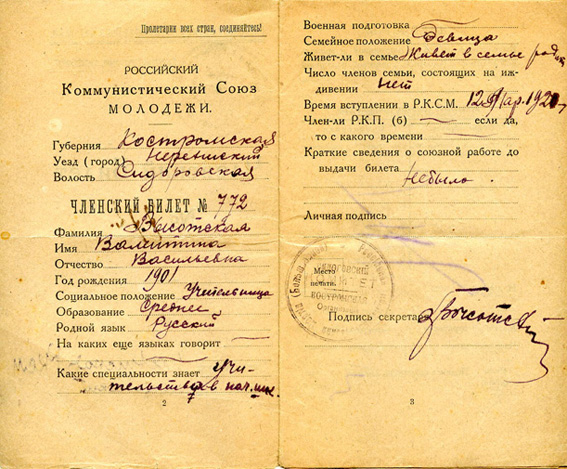 Пролетарии всех стран, соединяйтесь!
РОССИЙСКИЙ
Коммунистический Союз
МОЛОДЕЖИ.
Губерния Костромская
Уезд (город) Нерехтский
Волость Сидоровская
ЧЛЕНСКИЙ БИЛЕТ № 772
Фамилия Высотская
Имя Валентина
Отчество Васильевна
Год рождения 1901
Социальное положение Учительница
Образование Среднее
Родной язык Русский
На каких еще языках говорит —
Какие специальности знает Учи-
тельство в нач. шк.
2
Военная подготовка —
Семейное положение Девица
Живет-ли в семье Живет в семье
Число членов семьи, состоящих на иж-
дивении нет
Время вступления в Р.К.С.М. 12 Мар. 192
Член-ли Р.К.П. (б) — если да,
то с какого времени —
Краткие сведения о союзной работе до
выдачи билета
Небыло
Личная подпись
Место
печати.
Подпись секретаря
3